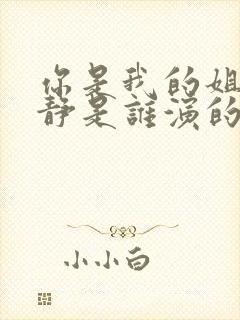 你是我的姐
静是誰演的
小小白